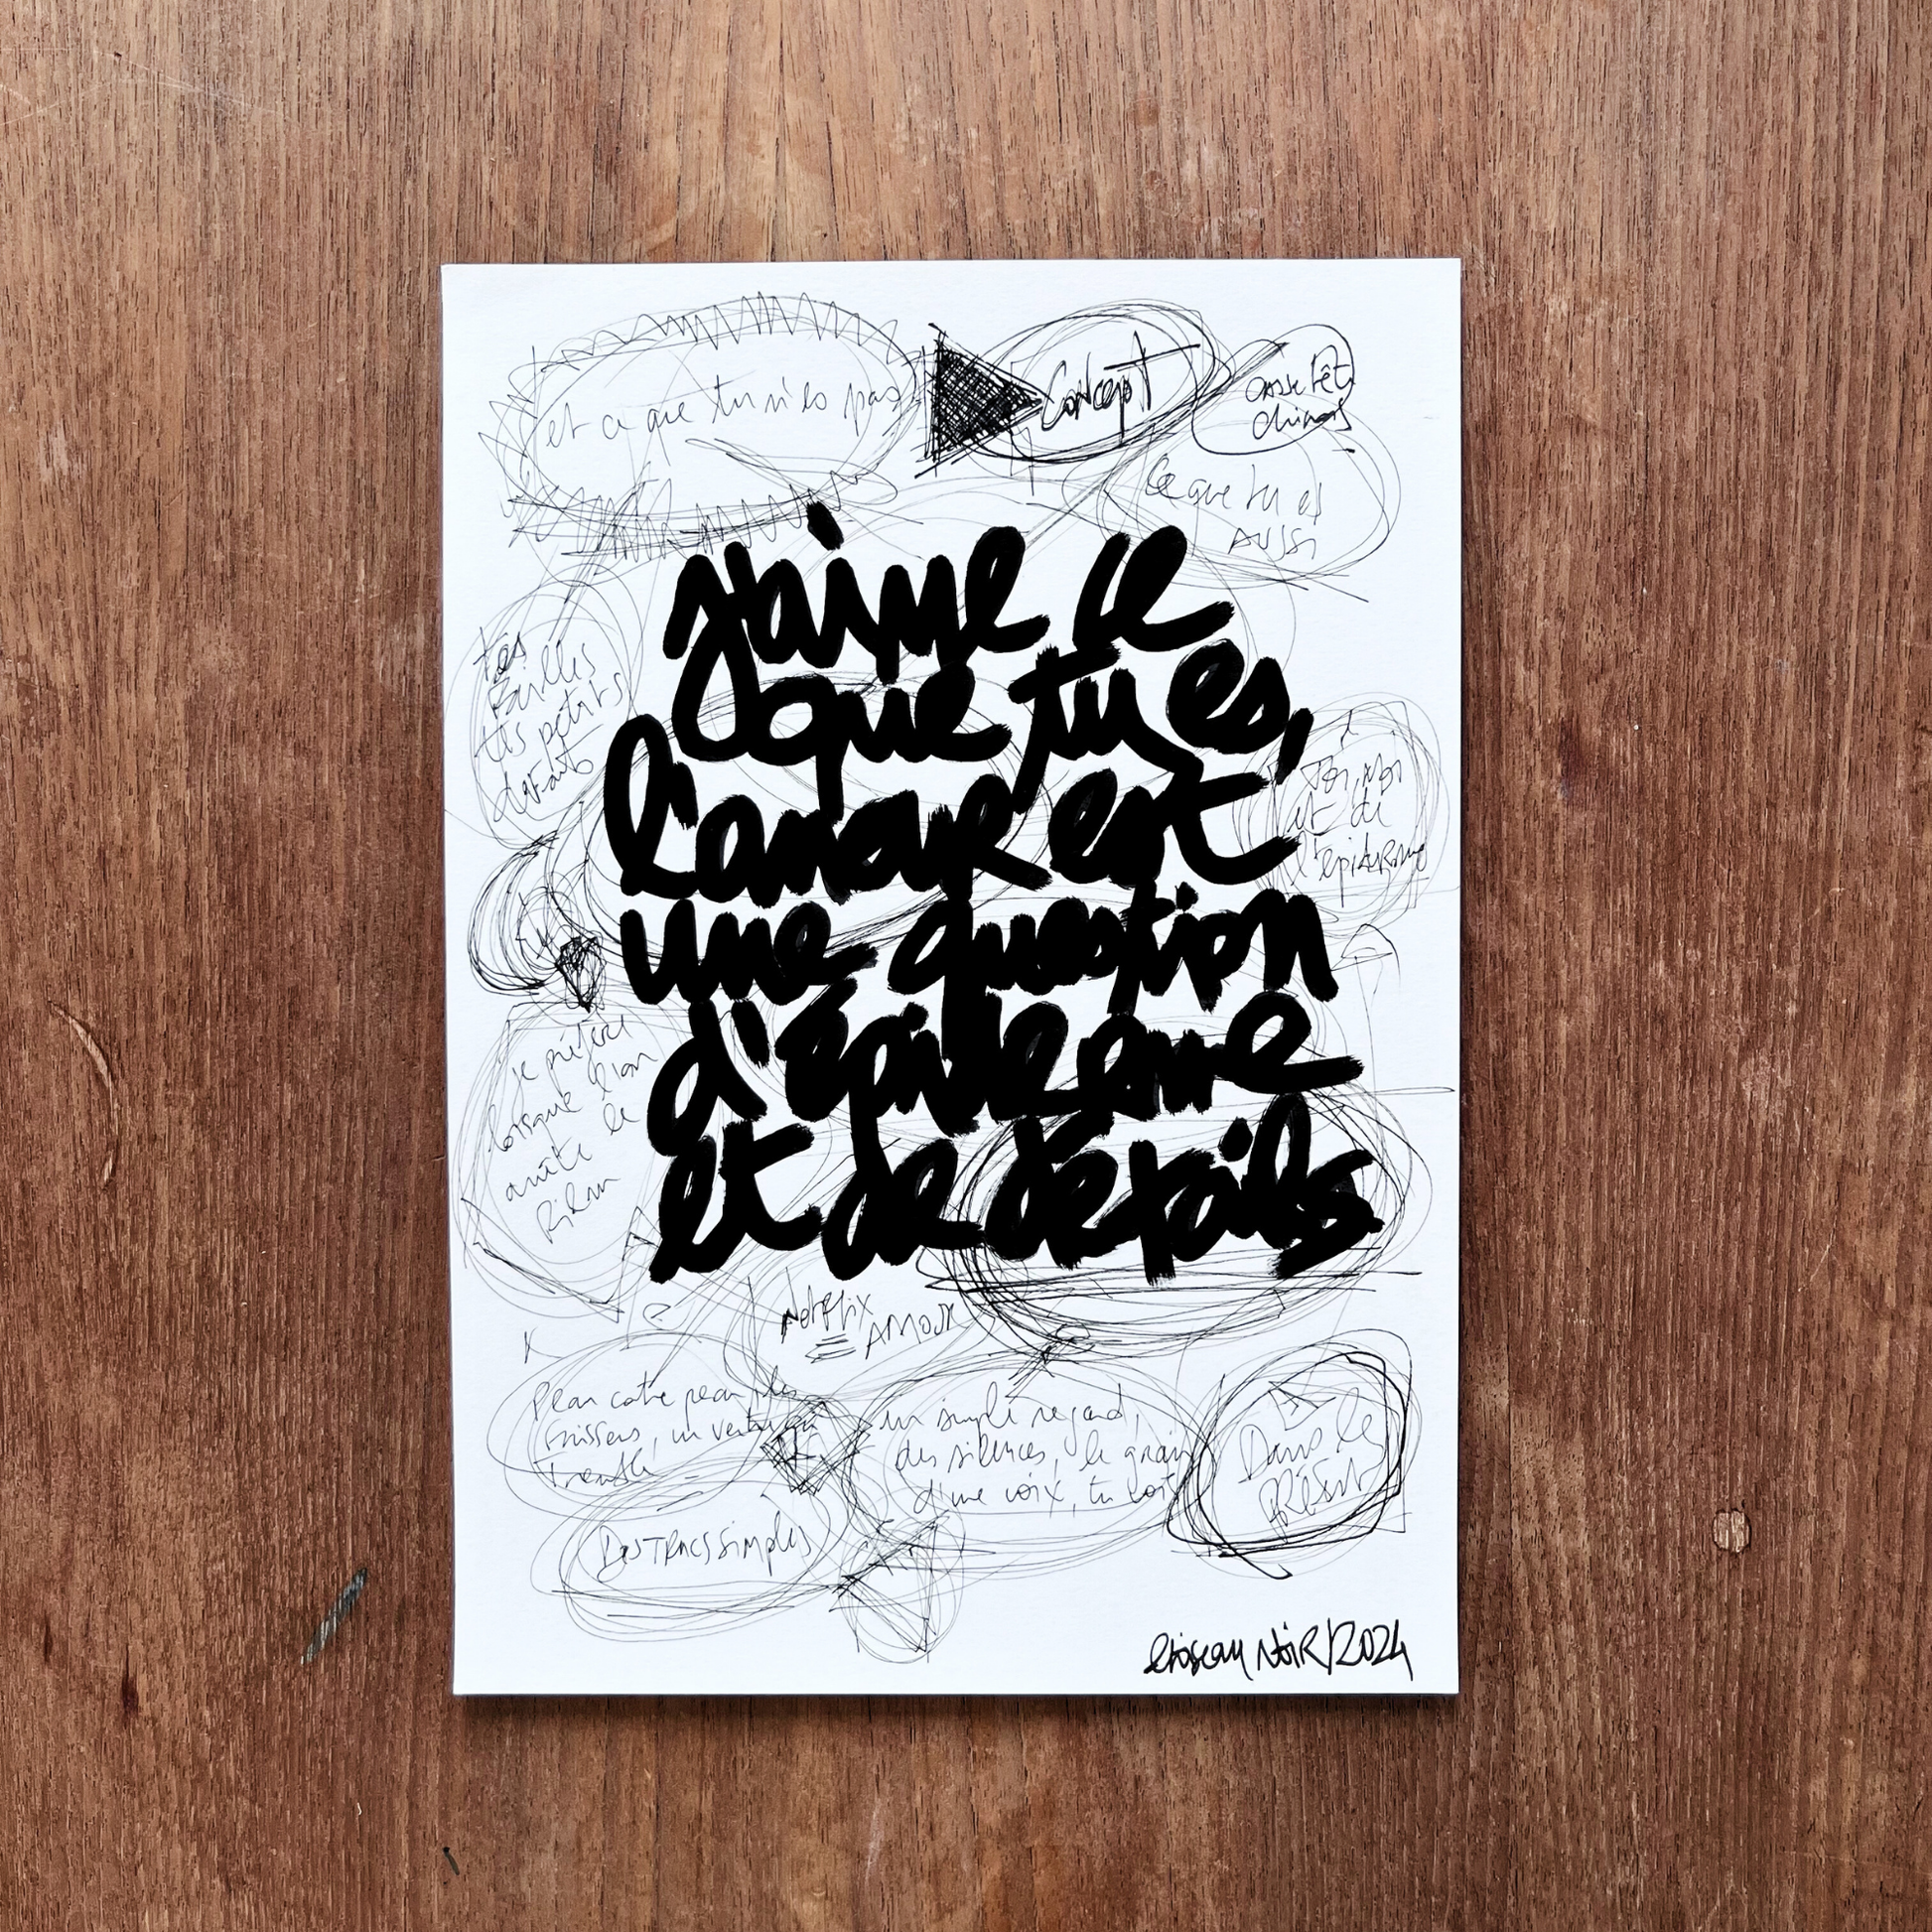 et ce que tu n'es pas
Concept
casse tête
chinois
ce que tu es
AUSSI
j'aime ce
que tu es,
l'amour est
une question
d'épiderme
et de détails
tes
failles
tes petits
défauts
Toi, moi
et de
l'épiderme
je préfère
lorsque l'on
arrête le
film
Netflix
= AMOUR
Peau contre peau, des
frissons, un ventre qui
tremble
un simple regard,
des silences, le grain
d'une voix, tu vois
Dans le
présent
DES TRUCS simples
loiseau NoiR/2024